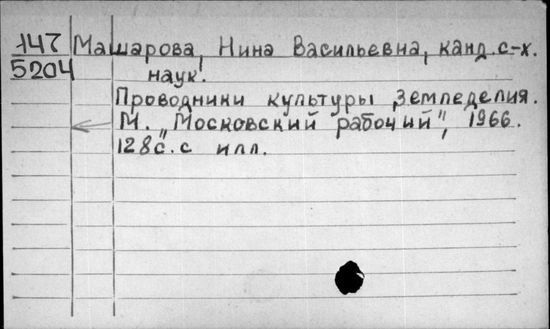 147 Машарова, Нина Васильевна, канд. с-х.
5204 наук.
Проводники культуры земледелия.
М. „Московский рабочий", 1966.
128с. с илл.